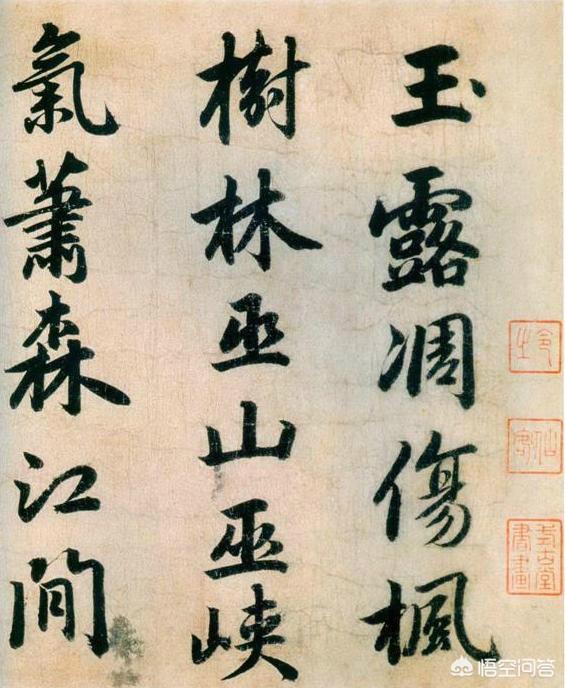 玉露凋傷楓
樹林巫山巫峽
氣蕭森江間
悟空问答